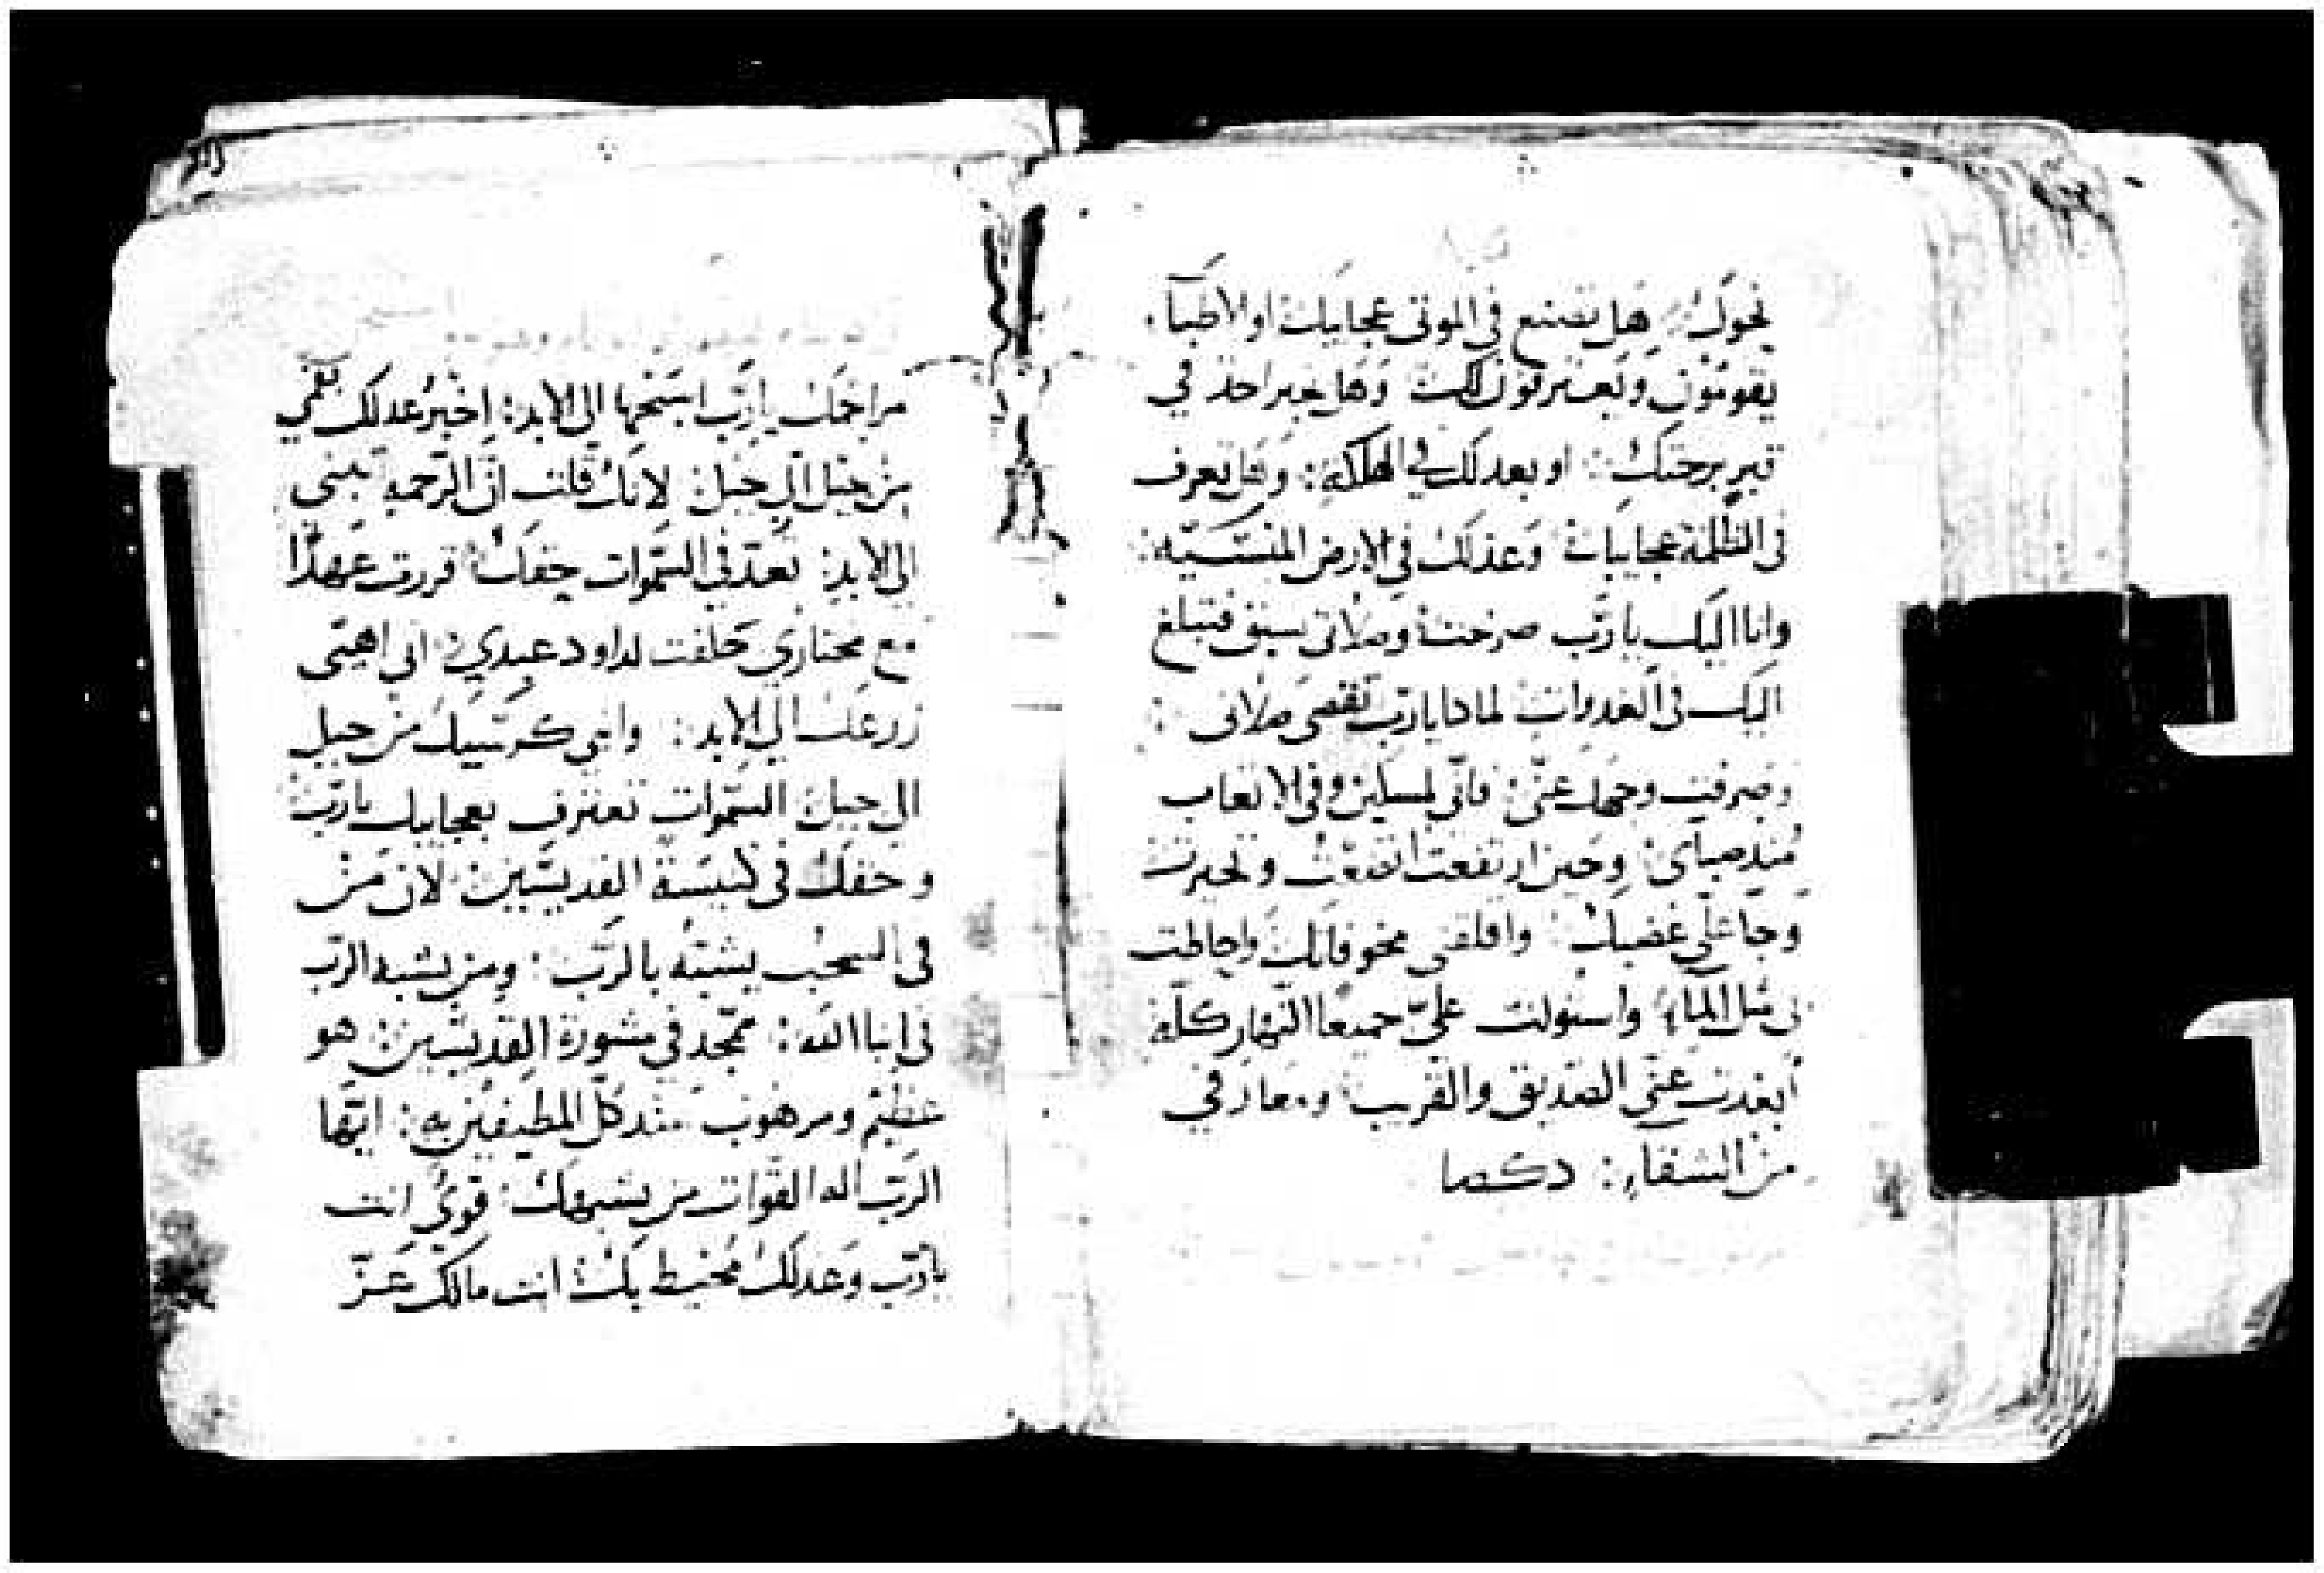 نحوك: هل تصنع في الموتى عجايبك او الاطبآء
يقومون ويعترفون لك وهل يخبر احد في
قبر برحمتك: او بعدلك في الهلكة: وهل تعرف
في الظلمة عجايبك وعدلك في الارض المنسيّه:
وانا اليك يا ربّ صرخت وصلاتي تسبق فتبلغ
اليك في الغدوات لماذا يا ربّ تقصي صلاتي:
وصرفت وجهك عنّي: فانّي لمسكين وفي الاتعاب
منذ صباي: وحين ارتفعت اتضعت وتحيرت
وجا عليّ غضبك: واقلقني مخوفاتك واحاطت
بي مثل المآء واستولت عليّ جميعًا النهار كلّه
ابعدت عنّي الصديق والقريب ومعارفي
من الشقاء: دكصا
مراحمك يا ربّ اسبّحها الى الابد: اخبر عدلك بفمي
من جيل الى جيل: لانك قلت انّ الرّحمه تبنى
الى الابد: تعدّ في السّموات حقك قررت عهدًا
مع مختاري حلفت لداود عبدي: اني اهيّى
زرعك الى الابد: وابني كرسيك من جيل
الى جيل السّموات تعترف بعجايبك يا ربّ
وحقك في كنيسة القديسّين: لان من
في السحب يشبّه بالرّب: ومن يشبه الرّب
في ابنا الله: ممّجد في مشورة القدّيسين: هو
عظيم ومرهوب عند كلّ المطيفين به: ايّها
الرّب اله القوّات من يشبهك: قويّ انت
يا ربّ وعدلك محيط بك انت مالك عزّ